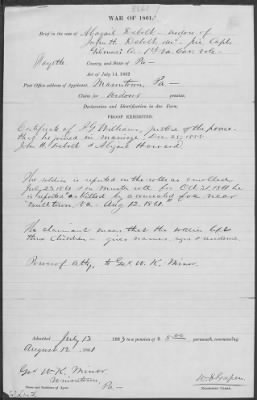 WAR OF 1861.
Brief in the case of Abigail Debolt widow of
John H. Debolt
Gilmore's Co. 1st Va. Cav. vols.
Fayette County, and State of Pa
Act of July 14, 1862
Post Office address of Applicant, Masontown, Pa
Claim for Widows pension.
Declaration and Identification in due form.
PROOF EXHIBITED.
Certificate of Williams, justice of the peace
they be joined in marriage Dec 25,
John H. Debolt & Abigail Howard
The soldier is reported in the rolls as enrolled
July 23 1861 on muster roll for Oct 31 1861 he
is reported as killed by a concealed foe near
Va Aug 12 1861.
The claimant swears that the soldier left
three children gives names, ages & residence.
Power of Atty, to Geo W. K. Minor
Admitted July 13 1863 to a pension of $ 8.00 per month, commencing
August 12 1861
Geo W. K. Minor
Uniontown
Pa
Name and Residence of Agent.
Examiner.